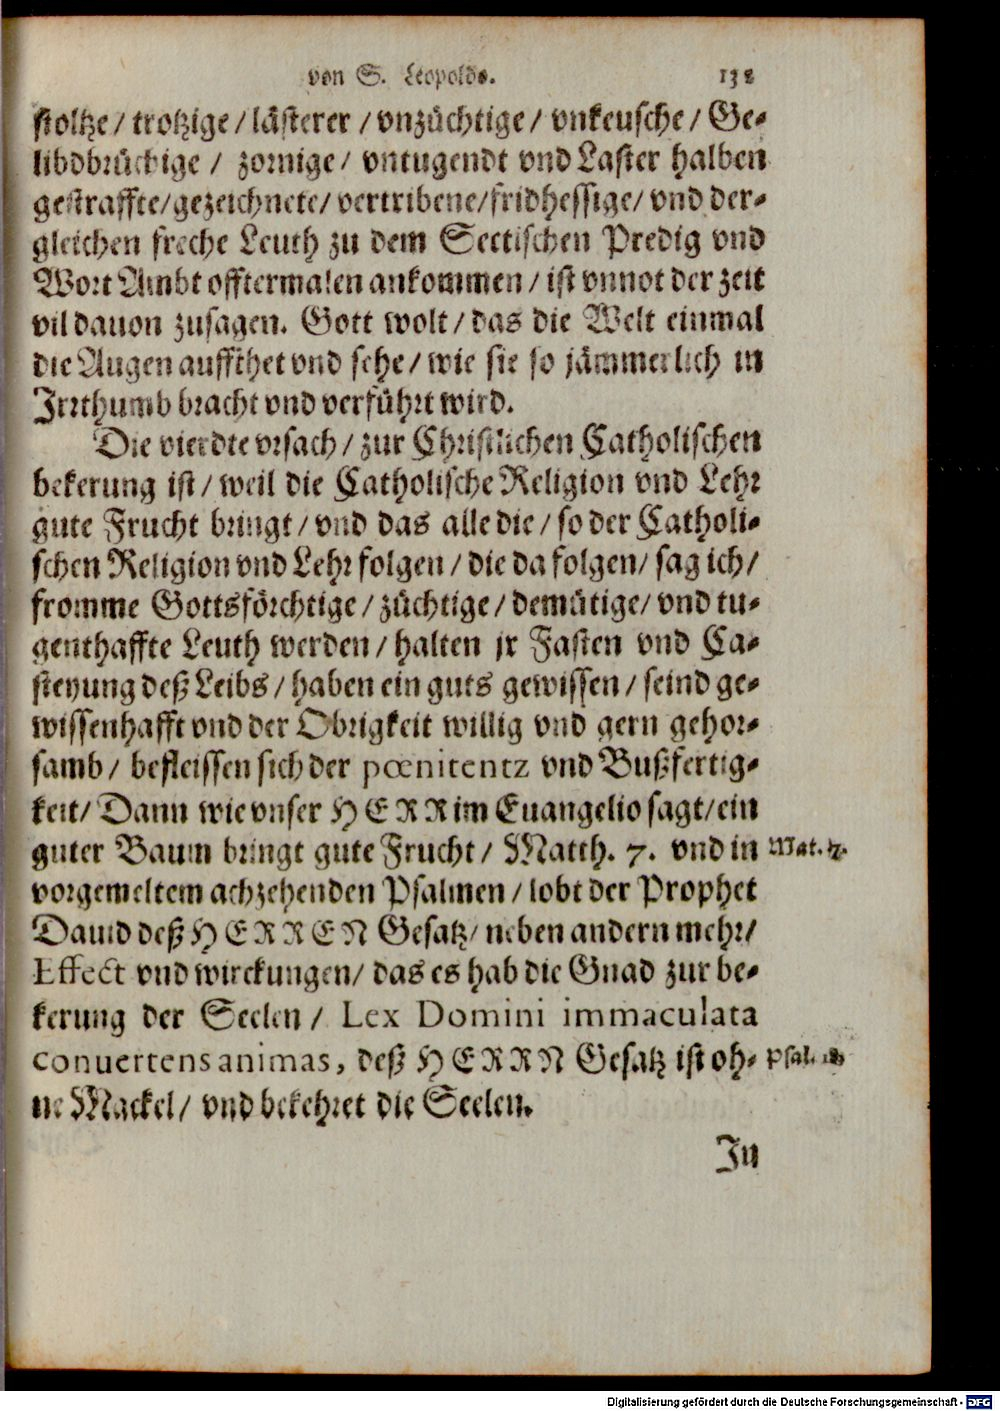 von S. Leopoldo. 138
stoltze / trotzige / lästerer / vnzüchtige / vnkeusche / Ge-
libdbrüchige / zornige / vntugendt vnd Laster halben
gestraffte / gezeichnete / vertribene / fridhessige / vnd der-
gleichen freche Leuth zu dem Sectischen Predig vnd
Wort Ambt offtermalen ankommen / ist vnnot der zeit
vil dauon zusagen. Gott wolt / das die Welt einmal
die Augen auffthet vnd sehe / wie sie so jämmerlich in
Jrrthumb bracht vnd verführt wird.
Die vierdte vrsach / zur Christlichen Catholischen
bekerung ist / weil die Catholische Religion vnd Lehr
gute Frucht bringt / vnd das alle die / so der Catholi-
schen Religion vnd Lehr folgen / die da folgen / sag ich /
fromme Gottsförchtige / züchtige / demütige / vnd tu-
genthaffte Leuth werden / halten jr Fasten vnd Ca-
steyung deß Leibs / haben ein guts gewissen / seind ge-
wissenhafft vnd der Obrigkeit willig vnd gern gehor-
samb / befleissen sich der pœnitentz vnd Bußfertig-
keit / Dann wie vnser HERR im Euangelio sagt / ein
guter Baum bringt gute Frucht / Matth. 7. vnd in Mat. 7.
vorgemeltem achzehenden Psalmen / lobt der Prophet
Dauid deß HERREN Gesatz / neben andern mehr /
Effect vnd wirckungen / das es hab die Gnad zur be-
kerung der Seelen / Lex Domini immaculata
conuertens animas, deß HERRN Gesatz ist oh- Psal. 18.
ne Mackel / vnd bekehret die Seelen.
In
Digitalisierung gefördert durch die Deutsche Forschungsgemeinschaft - DFG